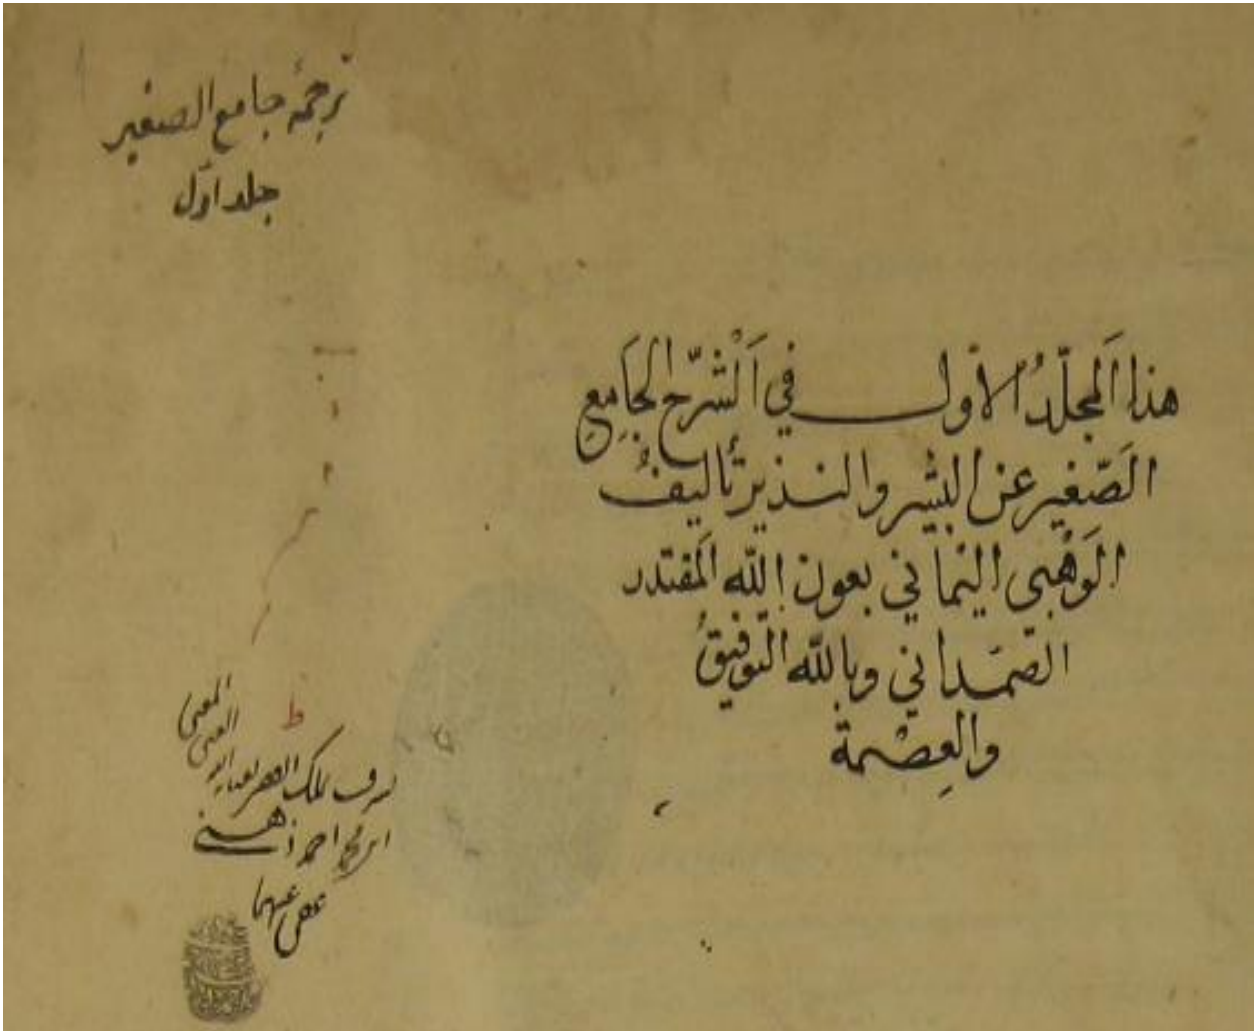 ترجمهٔ جامع الصغير
جلد اوّل
هذا اَلمجلّدُ الاَوّل في اَلْشّرّح الجَامِعِ
الَصّغير عن البشير والنذير تأليفُ
الوَهْبى اليَماني بعون اللّه المَقتدر
الصّمَداني وبالله التّوفيقُ
والعِصْمة
المعنى
الغنى
تملك الفقير
ابن محمد احمد ذهنى
عفى عنهما